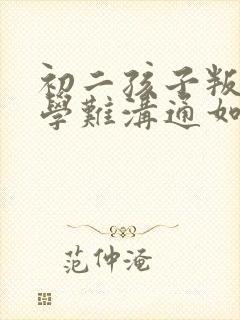 初二孩子叛
學難溝通如
范仲淹